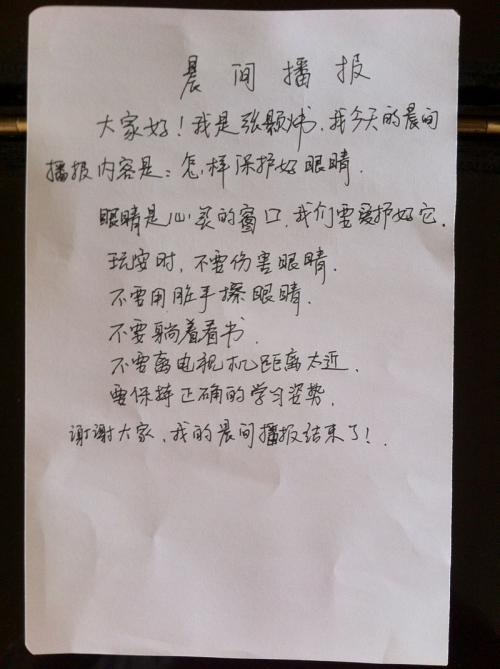 晨间播报
大家好！我是张颢炜.我今天的晨间
播报内容是：怎样保护好眼睛.
眼睛是心灵的窗口.我们需要爱护好它.
玩耍时，不要伤害眼睛.
不要用脏手擦眼睛.
不要躺着看书.
不要离电视机距离太近.
要保持正确的学习姿势.
谢谢大家.我的晨间播报结束了！.